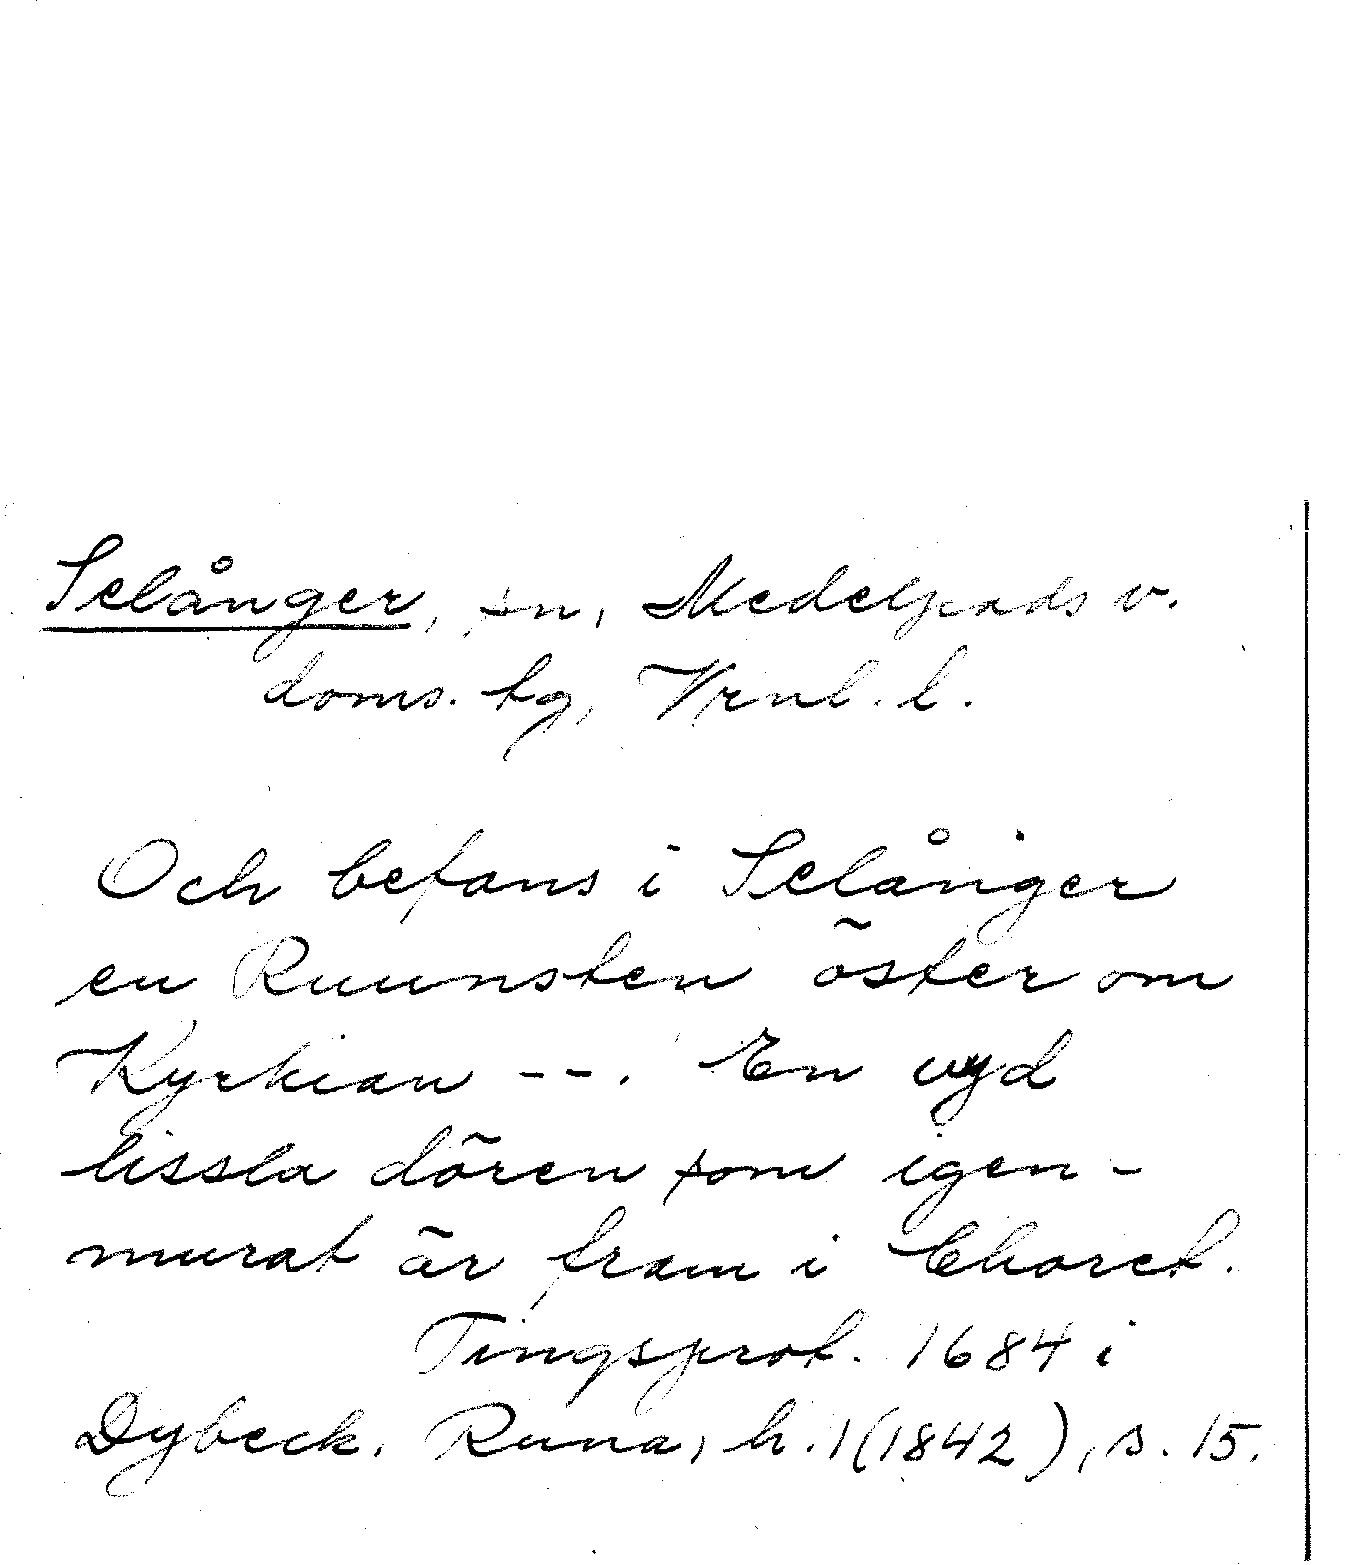 Selånger, sn, Medelpads v.
doms. hg, Vrnl. l.
Och befans i Selånger
en Ruunsten öster om
Kyrkian --. En vyd
lissla dören som igen-
murat är fram i Choret.
Tingsprot. 1684 i
Dybeck. Runa, h. 1 (1842), s. 15.